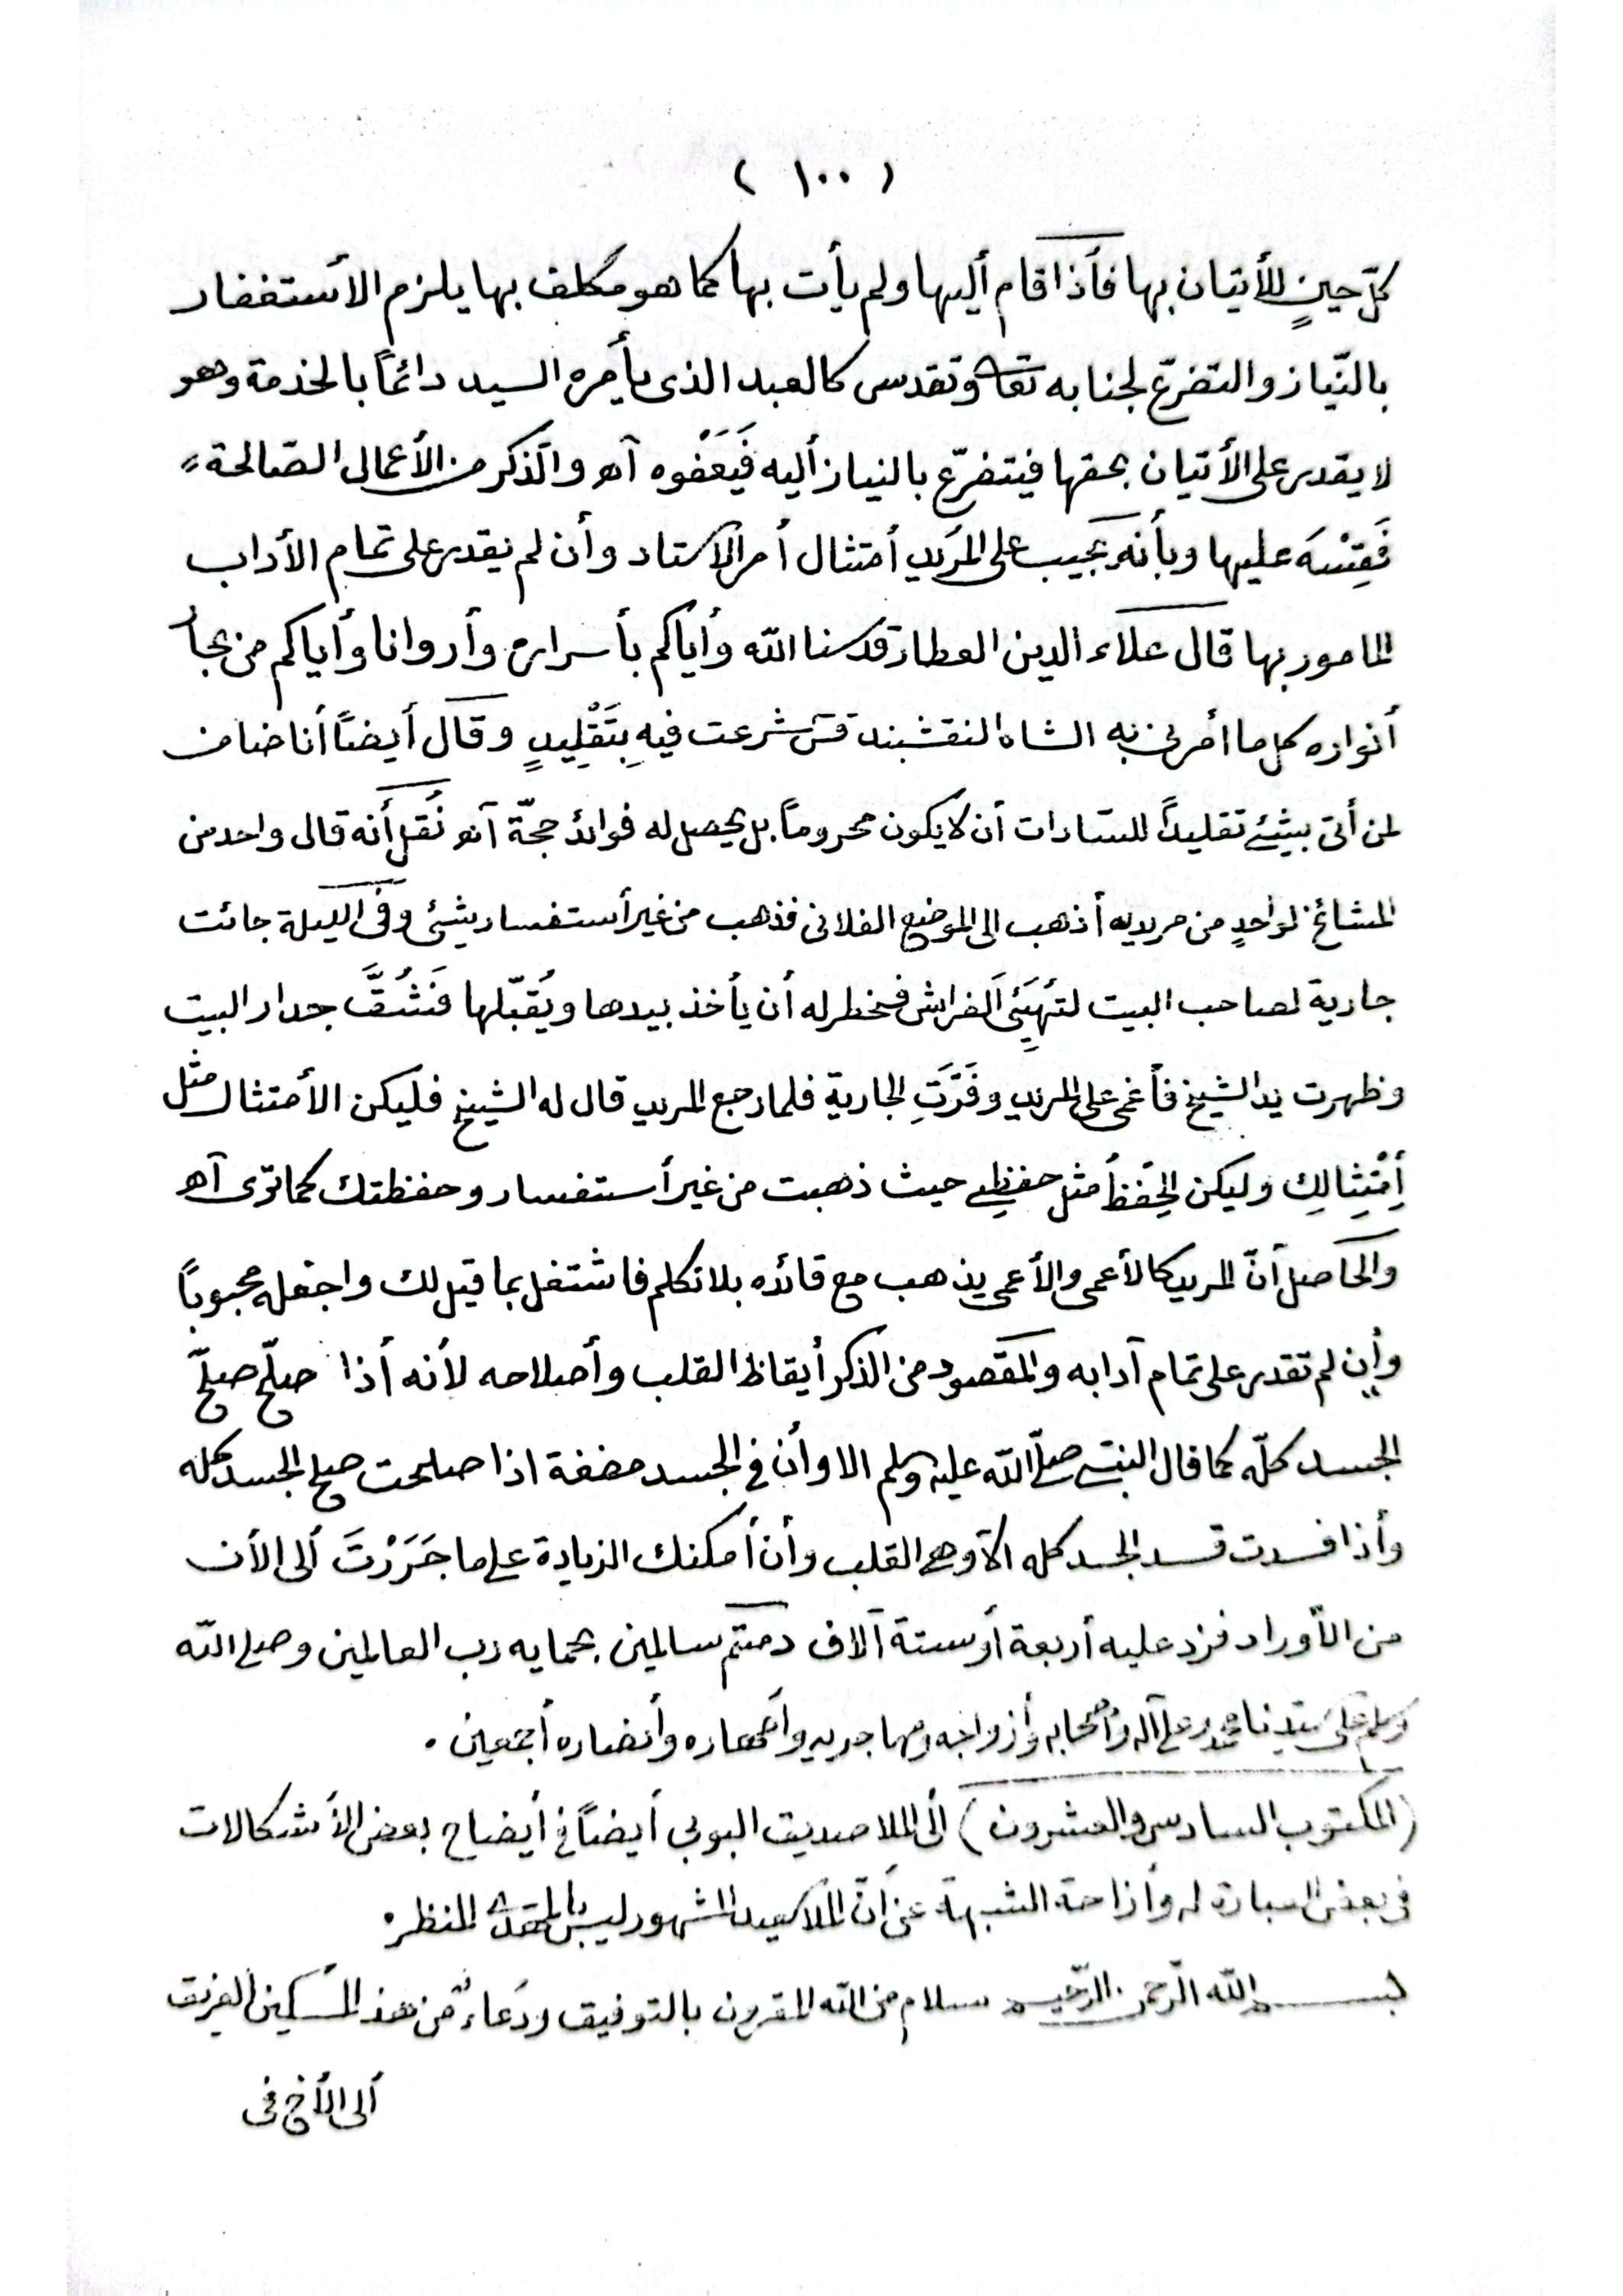 ( ١٠٠ )
كلّ حينٍ للأتيان بها فأذا قام أليها ولم يأت بها كما هو مكلف بها يلزم الأستغفار
بالنّياز والتضرّع لجنابه تعا وتقدس كالعبد الذى يأمره السيد دائماً بالخذمة وهو
لا يقدر على الأتيان بحقها فيتضرّع بالنياز أليه فَيَعْفوه آهـ والذكر من الأعمال الصّالحة
فَقِسْهُ عليها وبأنه يجب على المريد أمتثال أمر الأستاد وأن لم يقدر على تمام الأداب
المامور بها قال علاء الدين العطار قدسنا الله وأياكم بأسراره وأروانا وأياكم من بحار
أنواره كل ما أمرنى به الشاه النقشبند قس شرعت فيهِ بِتَقْلِيدٍ وقال أيضاً أنا ضامن
لمن أتى بشئ تقليداً للسادات أن لا يكون محروماً بل يحصل له فوائد جمّة آهـ نُقل أنه قال واحد من
المشائخ لواحدٍ من مريديه أذهب الى الموضع الفلانى فذهب من غير أستفسار بشئى وفى الليلة جائت
جارية لصاحب البيت لتُهَيِّئَ الفراش فخطر له أن يأخذ بيدها ويُقبّلها فَشُقَّ جدار البيت
وظهرت يد الشيخ فأغمى على المريد وفَرَّتِ الجارية فلما رجع المريد قال له الشيخ فليكن الأمتثال مثل
أِمْتِثالِك وليكن الحِفْظُ مثل حفظِى حيث ذهبت من غير أستفسار وحفظتك كما ترى آهـ
والحاصل أنّ المريد كالأعمى والأعمى يذهب مع قائده بلا تكلم فاشتغل بما قيل لك واجعله محبوباً
وأن لم تقدر على تمام آدابه والمقصود من الذكر أيقاظ القلب وأصلاحه لأنه أذا صلح صلح
الجسد كلّه كما قال النبى صلّى الله عليه وسلم الا وأن فى الجسد مضغة اذا صلحت صلح الجسد كله
وأذا فسدت فسد الجسد كله الآ وهى القلب وأن أمكنك الزيادة على ما جَرَرْتَ ألى الأن
من الأوراد فزد عليه أربعة أو ستة آلاف دمتم سالمين بحمايه رب العالمين وصلى الله
وسلم على سيدنا محمد وعلى آله وأصحابه وأزواجه ومهاجريه وأصهاره وأنصاره أجمعين .
( المكتوب السادس والعشرون ) ألى الملا صديق البوبى أيضاً فى أيضاح بعض الأشكالات
فى بعض العبارة له وأزاحة الشبهة عن أنّ الملا المشهور ليس المنظر
بسم الله الرّحمن الرّحيم سلام من الله المقرون بالتوفيق ودعاء من هذ المسكين الغريق
ألى الأخ فى